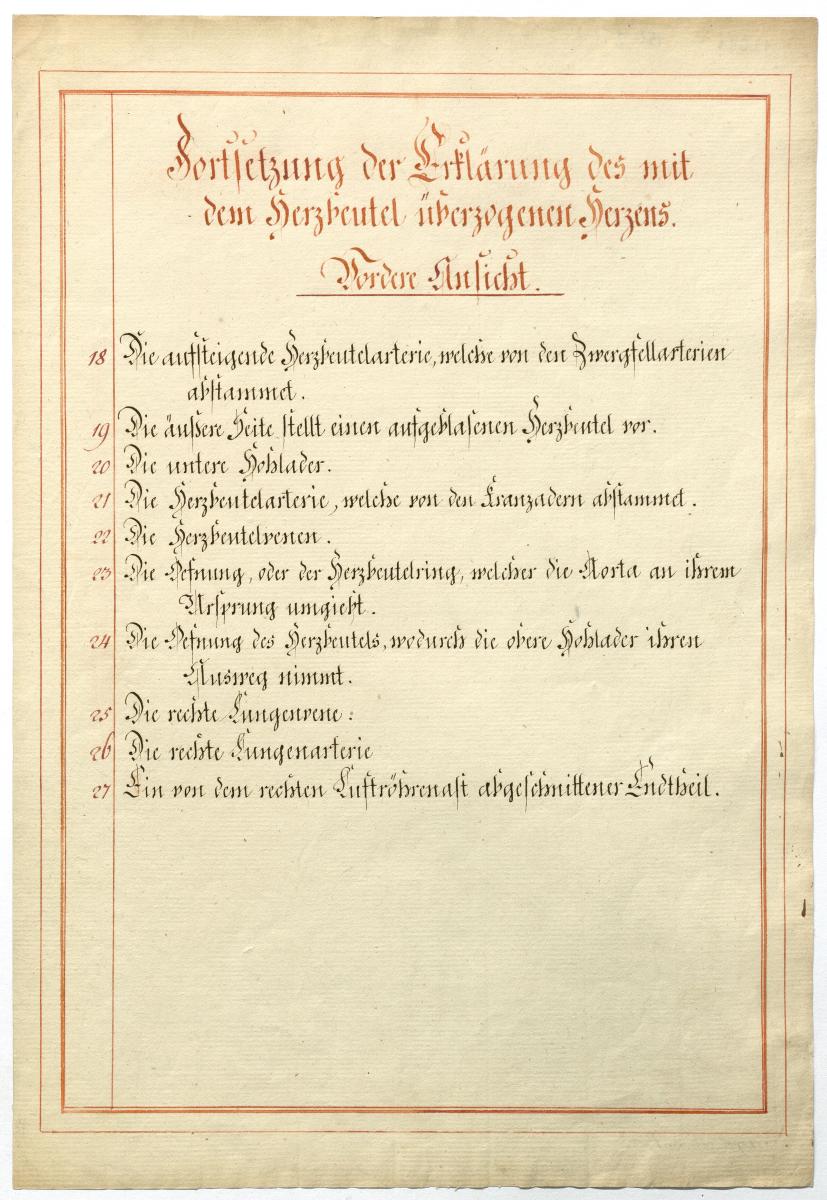 Fortsetzung der Erklärung des mit
dem Herzbeutel überzogenen Herzens.
Vordere Ansicht.
18 Die aufsteigende Herzbeutelarterie, welche von den Zwergfellarterien
abstammet.
19 Die äußere Seite stellt einen aufgeblasenen Herzbeutel vor.
20 Die untere Hohlader.
21 Die Herzbeutelarterie, welche von den Kranzadern abstammet.
22 Die Herzbeutelvenen.
23 Die Oefnung, oder der Herzbeutelring, welcher die Aorta an ihrem
Ursprung umgiebt.
24 Die Oefnung des Herzbeutels, wodurch die obere Hohlader ihren
Ausweg nimmt.
25 Die rechte Lungenvene:
26 Die rechte Lungenarterie
27 Ein von dem rechten Luftröhrenast abgeschnittener Endtheil.